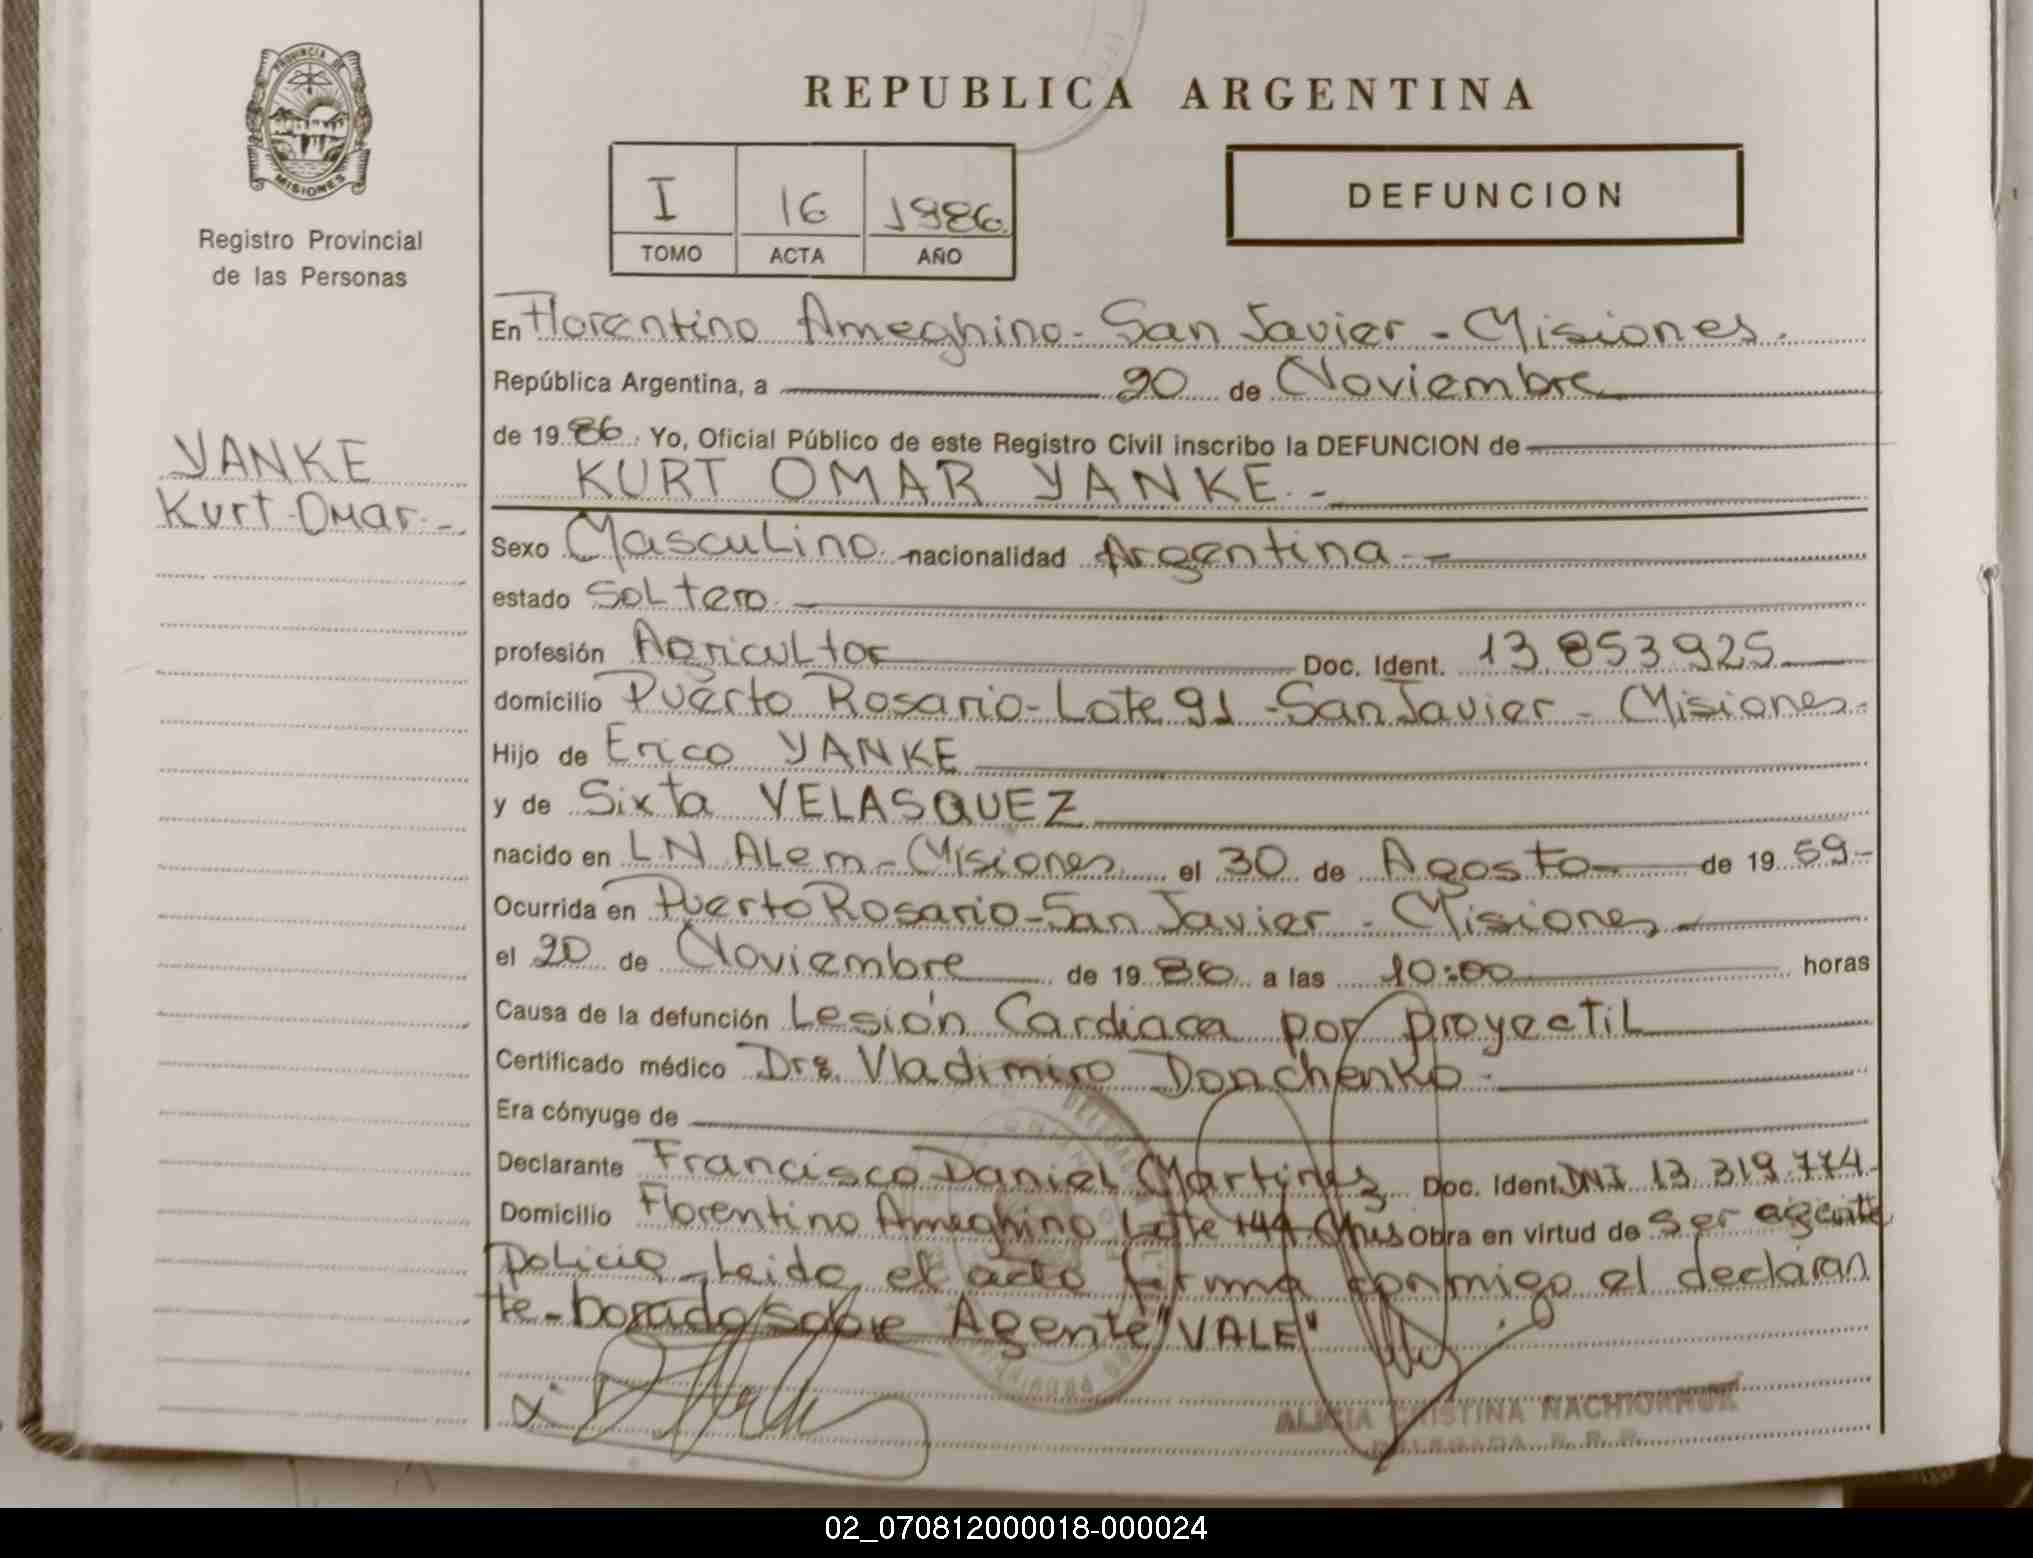 PROVINCIA DE
MISIONES
Registro Provincial
de las Personas
YANKE
Kurt Omar.-
REPUBLICA ARGENTINA
I 16 1986
TOMO ACTA AÑO
DEFUNCION
En Florentino Ameghino - San Javier - Misiones.
República Argentina, a 20 de Noviembre
de 1986. Yo, Oficial Público de este Registro Civil inscribo la DEFUNCION de
KURT OMAR YANKE.-
Sexo Masculino nacionalidad Argentina -
estado Soltero
profesión Agricultor Doc. Ident. 13.853.925
domicilio Puerto Rosario - Lote 91 - San Javier - Misiones.
Hijo de Erico YANKE
y de Sixta VELASQUEZ
nacido en L N ALem - Misiones el 30 de Agosto de 1959-
Ocurrida en Puerto Rosario - San Javier - Misiones -
el 20 de Noviembre de 1986 a las 10:00 horas
Causa de la defunción Lesión Cardiaca por proyectil
Certificado médico Dr. Vladimiro Donchenko.
Era cónyuge de
Declarante Francisco Daniel Martinez Doc. Ident. DNI 13.319.774-
Domicilio Florentino Ameghino Lote 144 Mnes Obra en virtud de ser agente
policia - Leido el acta firma conmigo el declaran
te - borrado sobre Agente "VALE"
ALICIA CRISTINA
DELEGADA R. R. P.
02_070812000018-000024